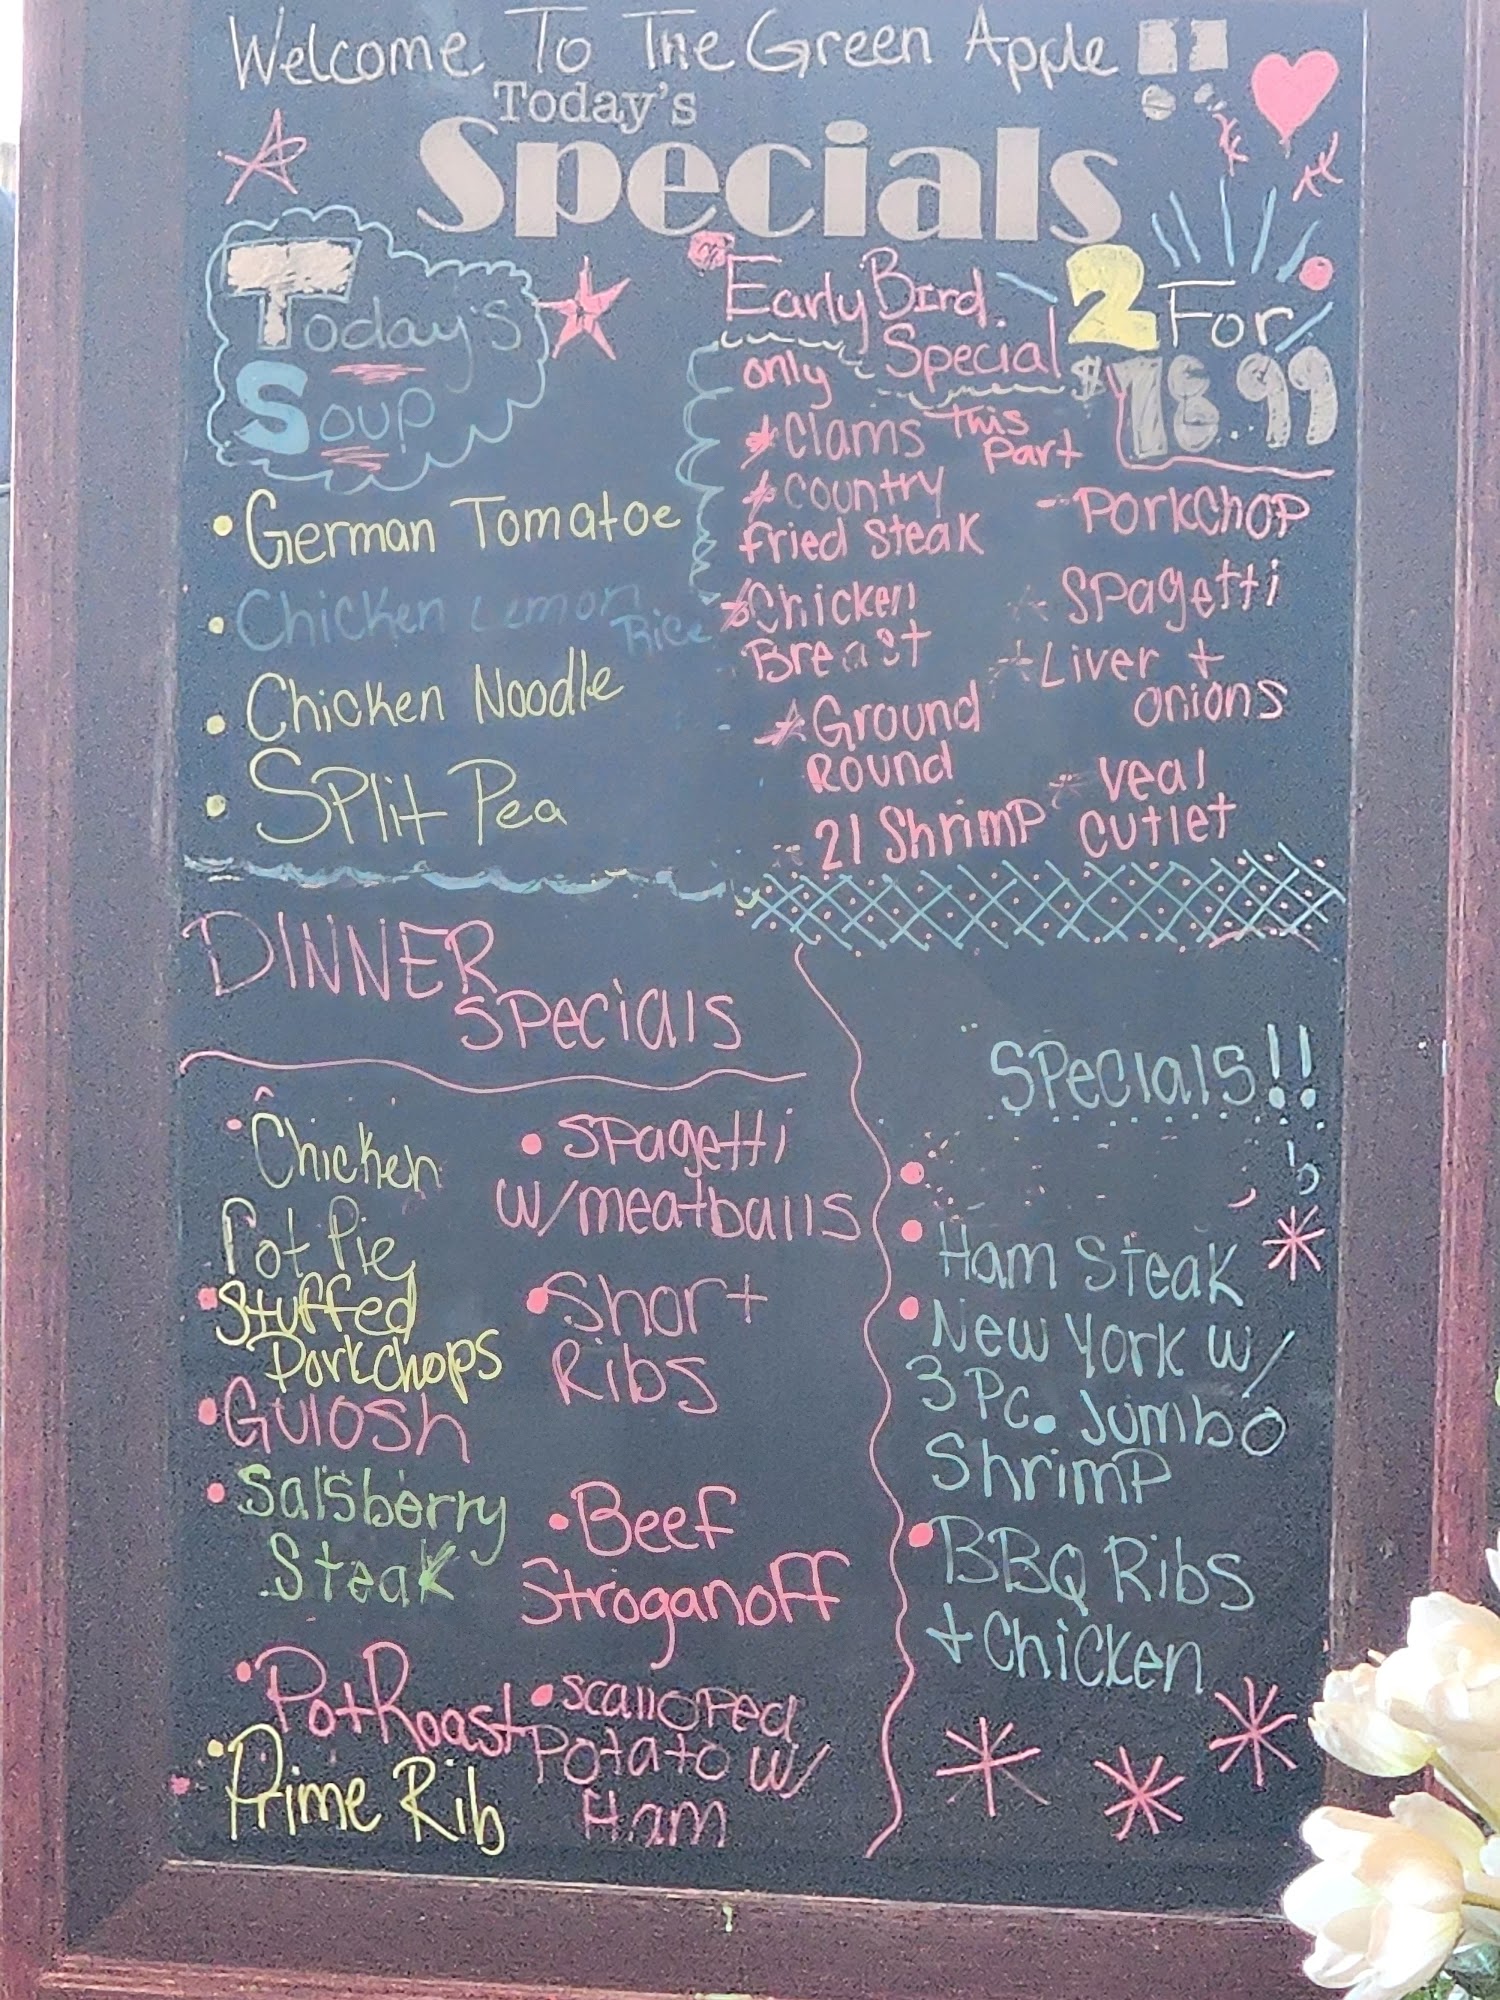 Welcome To The Green Apple !!
Today's
Specials
Today's
Soup
• German Tomatoe
• Chicken Lemon
Rice
• Chicken Noodle
• Split Pea
Early Bird
Special
only
This
Part
2 For
$18.99
* Clams
* Country
Fried Steak
* Chicken
Breast
* Ground
Round
21 Shrimp
- PorkChop
* Spagetti
* Liver +
onions
* Veal
Cutlet
DINNER
Specials
• Chicken
Pot Pie
• Stuffed
Porkchops
• Gulosh
• Salsberry
Steak
• Pot Roast
• Prime Rib
• Spagetti
w/meatballs
• Short
Ribs
• Beef
Stroganoff
• Scalloped
Potato w/
Ham
Specials!!
• Ham Steak
• New York w/
3 Pc. Jumbo
Shrimp
• BBQ Ribs
+ Chicken